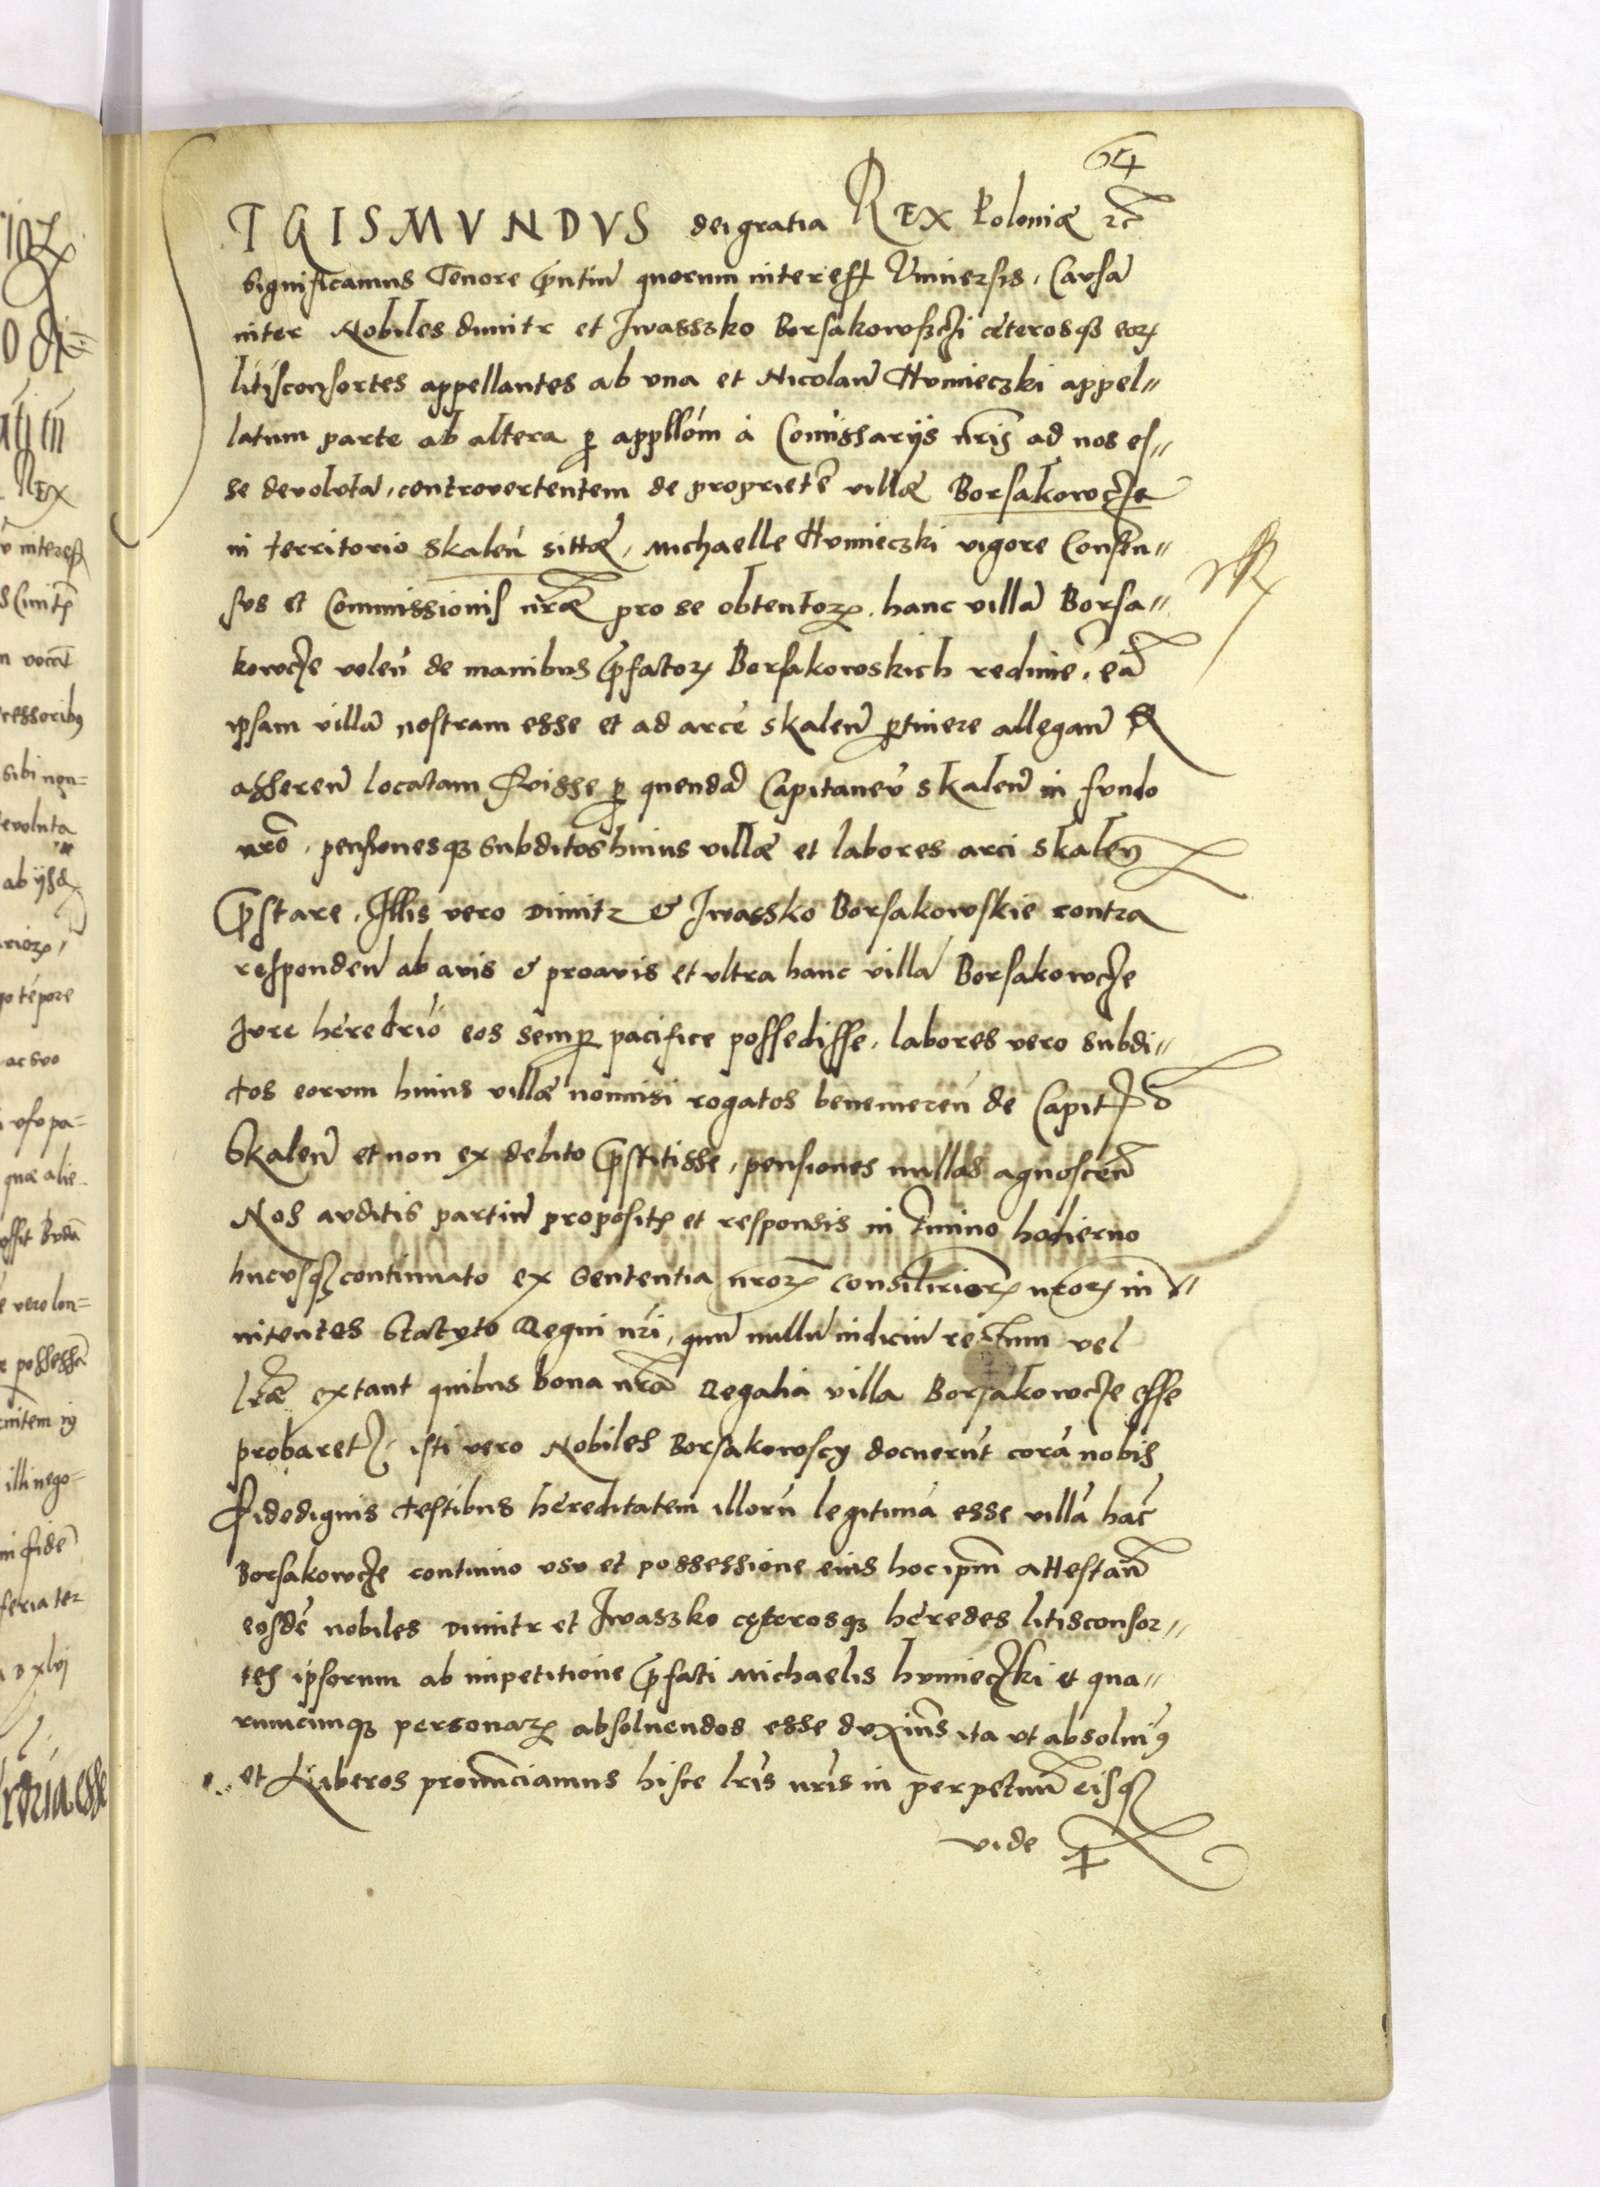 64
IGISMVNDVS dei gratia REX Poloniæ ꝛc̃
Significamus Tenore p̃ntiũ quorum interest Vniuersis, Causã
inter Nobiles dimitr et Iwasszko Borsakowsczi cæterosqꝫ eoꝝ
litisconsortes appellantes ab vna et Nicolaũ Humieczki appel„
latum parte ab altera ꝑ appllõm à Comissarijs nr̃is ad nos es„
se devolutã, controvertentem de propriet̃e villæ Borsakowcze
in territorio Skaleñ sittæ, Michaelle Humieczki vigore Consen„
sus et Commissionis nr̃æ pro se obtentoꝝ hanc villã Borsa„
kowcze voleñ de manibus p̃fatoꝝ Borsakowskich redime͂, eã
ipsam villã nostram esse et ad arcẽ Skaleñ ꝑtinere allegañ &
asserеñ locatam fuisse ꝑ quendã Capitaneũ Skaleñ in fundo
nrõ, pensionesqꝫ subditos huius villæ et labores arci Skaleñ
p̃stare, Illis vero Dimitr & Iwassko Borsakowskie contra
respondeñ ab avis & proavis et vltra hanc villã Borsakowcze
Iure hæredr̃io eos semꝑ pacifice possedisse, labores vero subdi„
tos eorum huius villæ nonnisi rogatos benemereñ de Capit̃o
Skaleñ et non ex debito p̃stitisse, pensiones nullas agnosceñ
Nos auditis partiũ propositꝭ et responsis in T̃mino hodierno
hucusqꝫ continuato ex Sententia nr̃oꝝ consiliarioꝝ nr̃oꝝ in
nitentes Statuto Regni nr̃i, quũ nullũ indiciũ rectum vel
lr̃æ extant quibus bona nr̃a Regalia villa Borsakowcze esse
probaretꝛ, isti vero Nobiles Borsakowscy docuerũt corã nobis
Fidedignis testibus hæreditatem illorũ legitimã esse villã hãc
Borsakowcze continuo vsu et possessione eius hoc ip̃m attestañ
eosdẽ nobiles Dimitr et Iwaszko cęterosqꝫ hæredes litisconsor„
tes ipsorum ab impetitione p̃fati Michaelis humieczki et qua„
rumcunqꝫ personaꝝ absoluendos esse duximꝰ ita vt absoluimꝰ
et Liberos pronunciamus hisce lr̃is nr̃is in perpetuũ eisqꝫ
vide